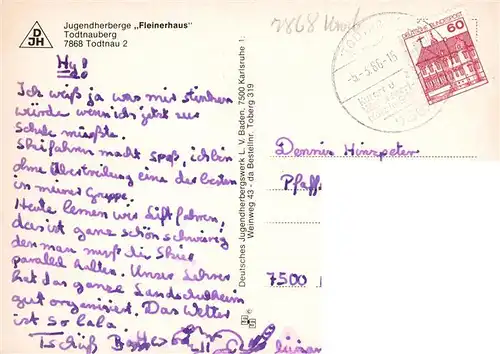 Jugendherberge „Fleinerhaus"
Todtnauberg
7868 Todtnau 2
DJH
Hy!
Ich weiß ja was mir stinken
würde wenn ich jetzt zur
Schule müßte.
Skifahren macht spaß, ich bin
ohne Übertreibung eine der besten
in meiner Gruppe.
Heute lernen wir Liftfahren,
das ist ganz schön schwierig
den man muß die Skier
parallel halten. Unser Lehrer
hat das ganze Landschulheim
gut organisiert. Das Wetter
ist so lala.
Tschüß
Deutsches Jugendherbergswerk L. V. Baden, 7500 Karlsruhe 1
Weinweg 43 - da Bestellnr. Toberg 319
7868
-5.-3.86-15
DEUTSCHE BUNDESPOST
60
Dennis Hinzpeter
Pfaff
7500